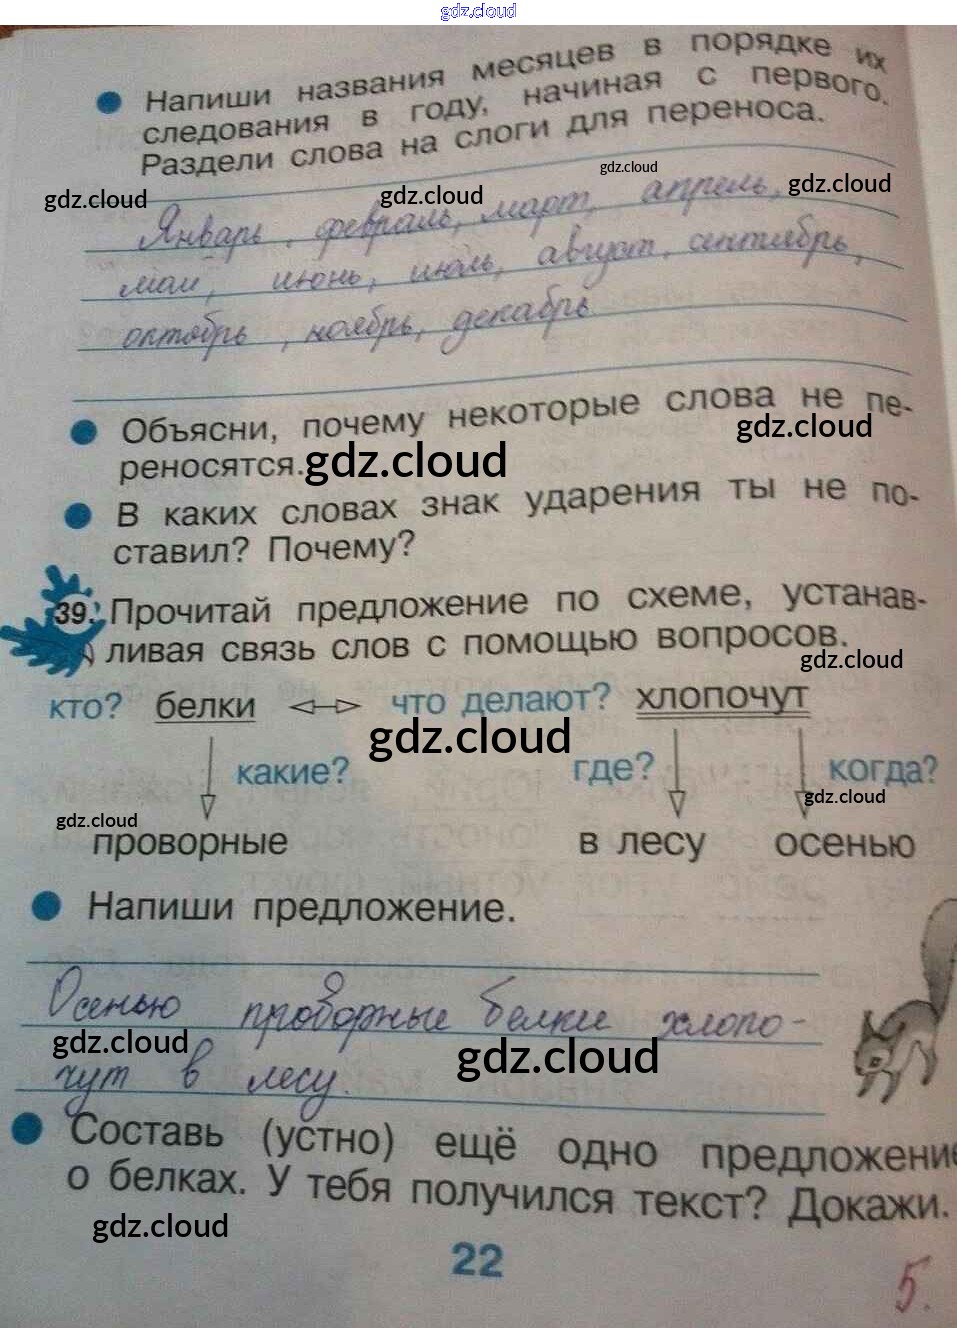 gdz.cloud
Напиши названия месяцев в порядке их
следования в году, начиная с первого.
Раздели слова на слоги для переноса.
gdz.cloud gdz.cloud gdz.cloud gdz.cloud
Январь, февраль, март, апрель,
май, июнь, июль, август, сентябрь,
октябрь, ноябрь, декабрь
Объясни, почему некоторые слова не пе-
реносятся.
gdz.cloud gdz.cloud
В каких словах знак ударения ты не по-
ставил? Почему?
39. Прочитай предложение по схеме, устанав-
ливая связь слов с помощью вопросов.
gdz.cloud
кто? белки что делают? хлопочут
gdz.cloud
какие? где? когда?
gdz.cloud gdz.cloud
проворные в лесу осенью
Напиши предложение.
Осенью проворные белки хлопо-
gdz.cloud gdz.cloud
чут в лесу.
Составь (устно) ещё одно предложение
о белках. У тебя получился текст? Докажи.
gdz.cloud
22
5.